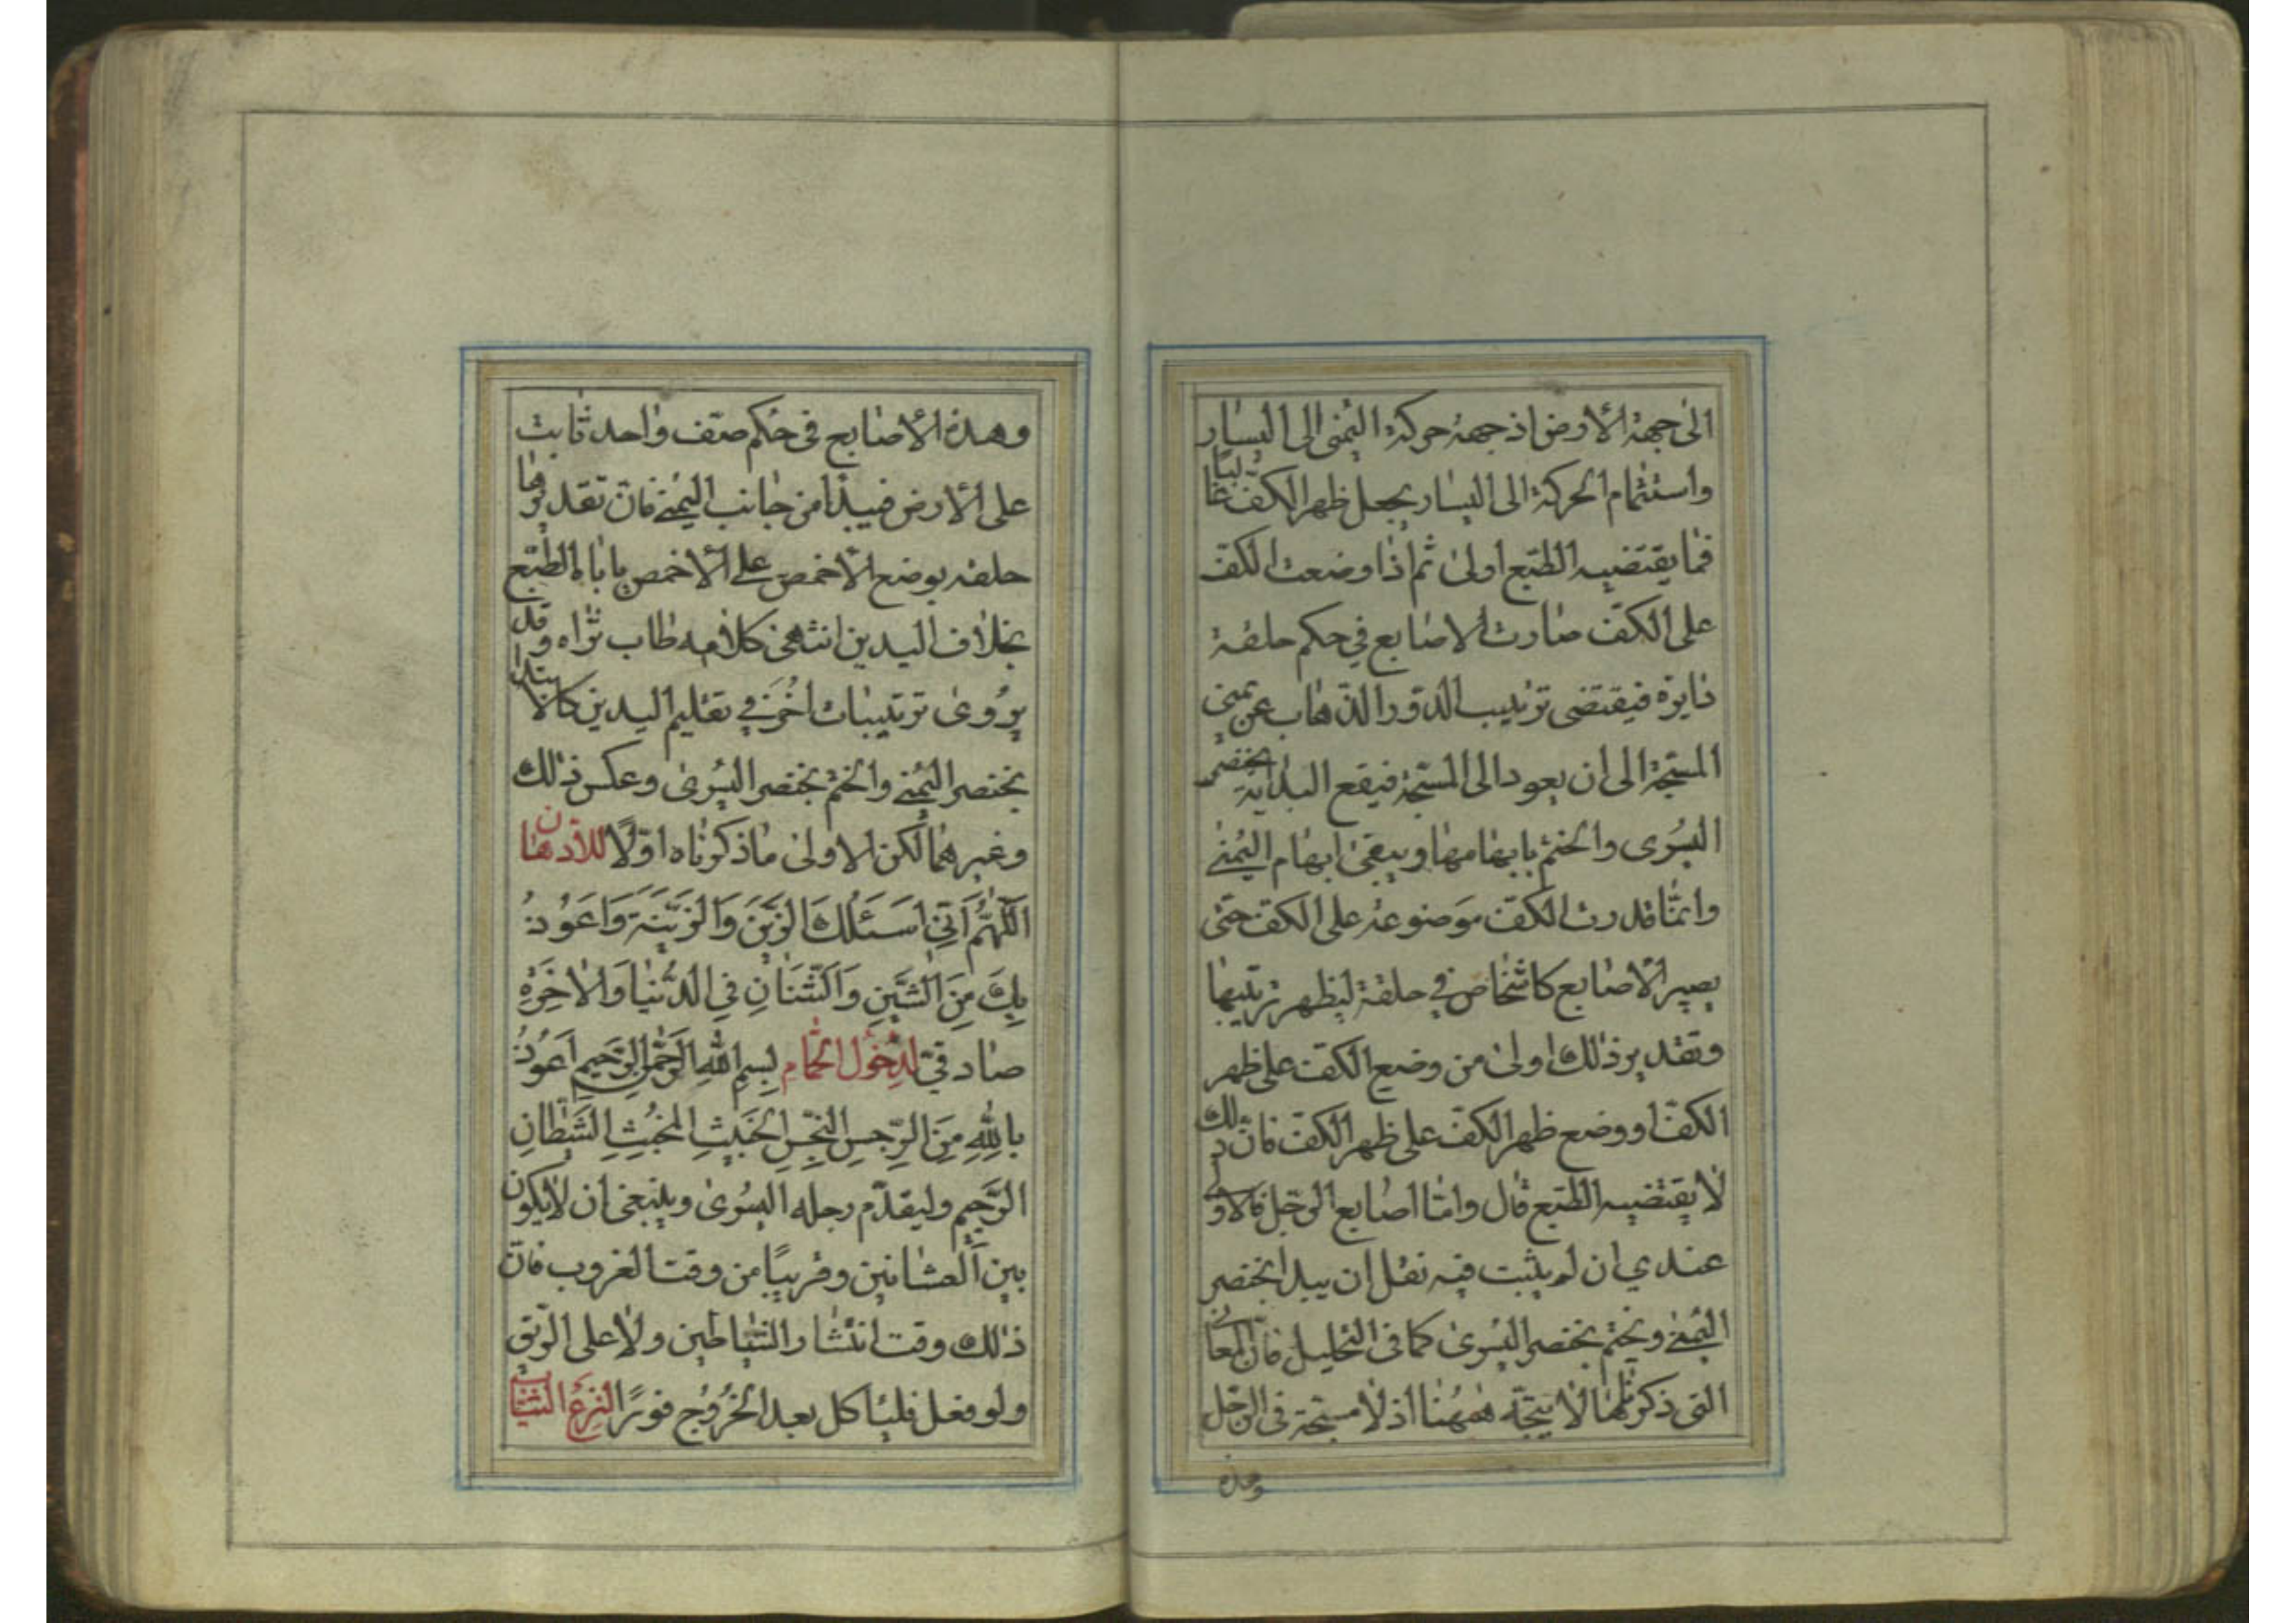 الى جهة الأرض اذ جهة حركة اليمنى الى اليسار
واستتمام الحركة الى اليسار يجعل ظهر الكف غالبًا
فما يقتضيه الطبع اولى ثم اذا وضعت الكف
على الكف صارت الاصابع في حكم حلقة
دايرة فيقتضى ترتيب الدّور الذّهاب عن يمنى
المسبّحة الى ان يعود الى المسبّحة فيقع البداية بخنصر
اليُسرى والختم بابهامها ويبقى ابهام اليُمنى
وانّما قدرت الكفّ موضوعة على الكف حتى
يصير الأصابع كاشخاص في حلقة ليظهر ترتيبها
وتقدير ذلك اولى من وضع الكف على ظهر
الكفّ او وضع ظهر الكف على ظهر الكف فانّ ذلك
لا يقتضيه الطّبع قال وامّا اصابع الرّجل فالاولى
عندي ان لم يثبت فيه نقل ان يبدا بخنصر
اليُمنى ويختم بخنصر اليُسرى كما فى التخليل فانّ المعانى
التى ذكرناها لا يتجّه هٰهُنا اذ لا مسبّحة فى الرّجل
وهذه
وهذه الأصابع فى حكم صف واحد ثابت
على الأرض فيبدأ من جانب اليُمنى فانّ تقديرها
حلقة بوضع الأخمص على الأخمص ياباه الطّبع
بخلاف اليدين انتهى كلامه طاب ثراه وقد
يروى ترتيبات أخر في تقليم اليدين كالابتداء
بخنصر اليُمنى والختم بخنصر اليُسرى وعكس ذلك
وغيرهما لكن الاولى ما ذكرناه اوّلًا للادهان
اللّهُمَّ اِنّي اَسئَلُكَ الزَّيْنَ وَالزّينَةَ وَاَعُوذُ
بِكَ مِنَ الشَّيْنِ وَالشَّنَانِ فِي الدُّنْيا وَالاٰخِرَةِ
صادقيّ لدُخُول الحمّام بِسمِ اللهِ الرَّحمٰنِ الرَّحيمِ اَعُوذُ
بِاللهِ مِنَ الرِّجسِ النَّجِسِ الخَبيثِ المُخبِثِ الشَّيطانِ
الرَّجيمِ وليقدّم رجله اليُسرى وينبغى ان لا يكون
بين العشائين وقريبًا من وقت الغروب فانّ
ذلك وقت انتشار الشّياطين ولا على الرّيق
ولو فعل فلياكل بعد الخُروج فورًا لنزع الثّياب